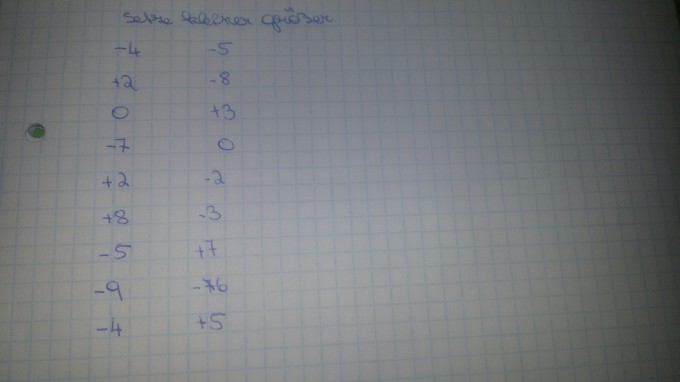 Setze kleiner größer
-4 -5
+2 -8
0 +3
-7 0
+2 -2
+8 -3
-5 +7
-9 -76
-4 +5